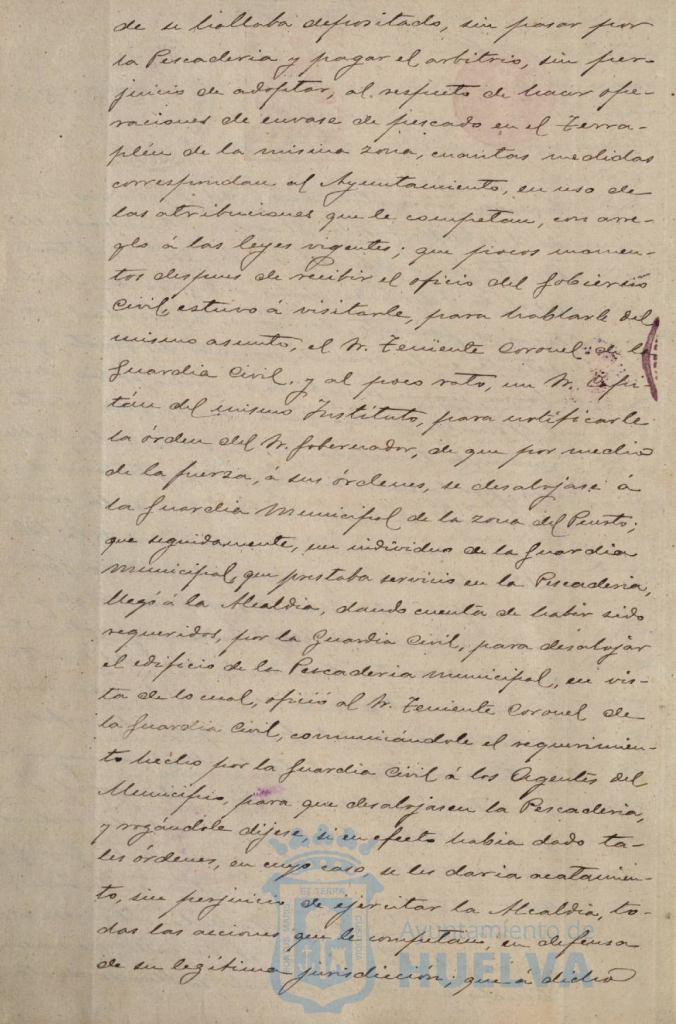 de se hallaba depositado, sin pasar por
la Pescaderia y pagar el arbitrio, sin per-
juicio de adoptar, al respeto de hacer ope-
raciones de envase de pescado en el Terra-
plén de la misma zona, cuantas medidas
correspondan al Ayuntamiento, en uso de
las atribuciones que le competan, con arre-
glo á las leyes vigentes; que pocos momen-
tos despues de recibir el oficio del Gobierno
Civil, estuvo á visitarle, para hablarle del
mismo asunto, el Sr. Teniente Coronel de la
Guardia Civil, y al poco rato, un Sr. Capi-
tán del mismo Instituto, para notificarle
la órden del Sr. Gobernador, de que por medio
de la fuerza, á sus órdenes, se desalojase á
la Guardia Municipal de la zona del Puerto;
que seguidamente, un individuo de la Guardia
Municipal, que prestaba servicio en la Pescaderia,
llegó á la Alcaldia, dando cuenta de haber sido
requeridos, por la Guardia Civil, para desalojar
el edificio de la Pescaderia Municipal, en vis-
ta de lo cual, ofició al Sr. Teniente Coronel de
la Guardia Civil, comunicándole el requerimien-
to hecho por la Guardia Civil á los Agentes del
Municipio, para que desalojasen la Pescaderia,
y rogándole dijese, si en efecto habia dado ta-
les órdenes, en cuyo caso se les daria acatamien-
to, sin perjuicio de ejercitar la Alcaldia, to-
das las acciones que le competan, en defensa
de su legítima jurisdicción; que á dicho
Ayuntamiento de
HUELVA